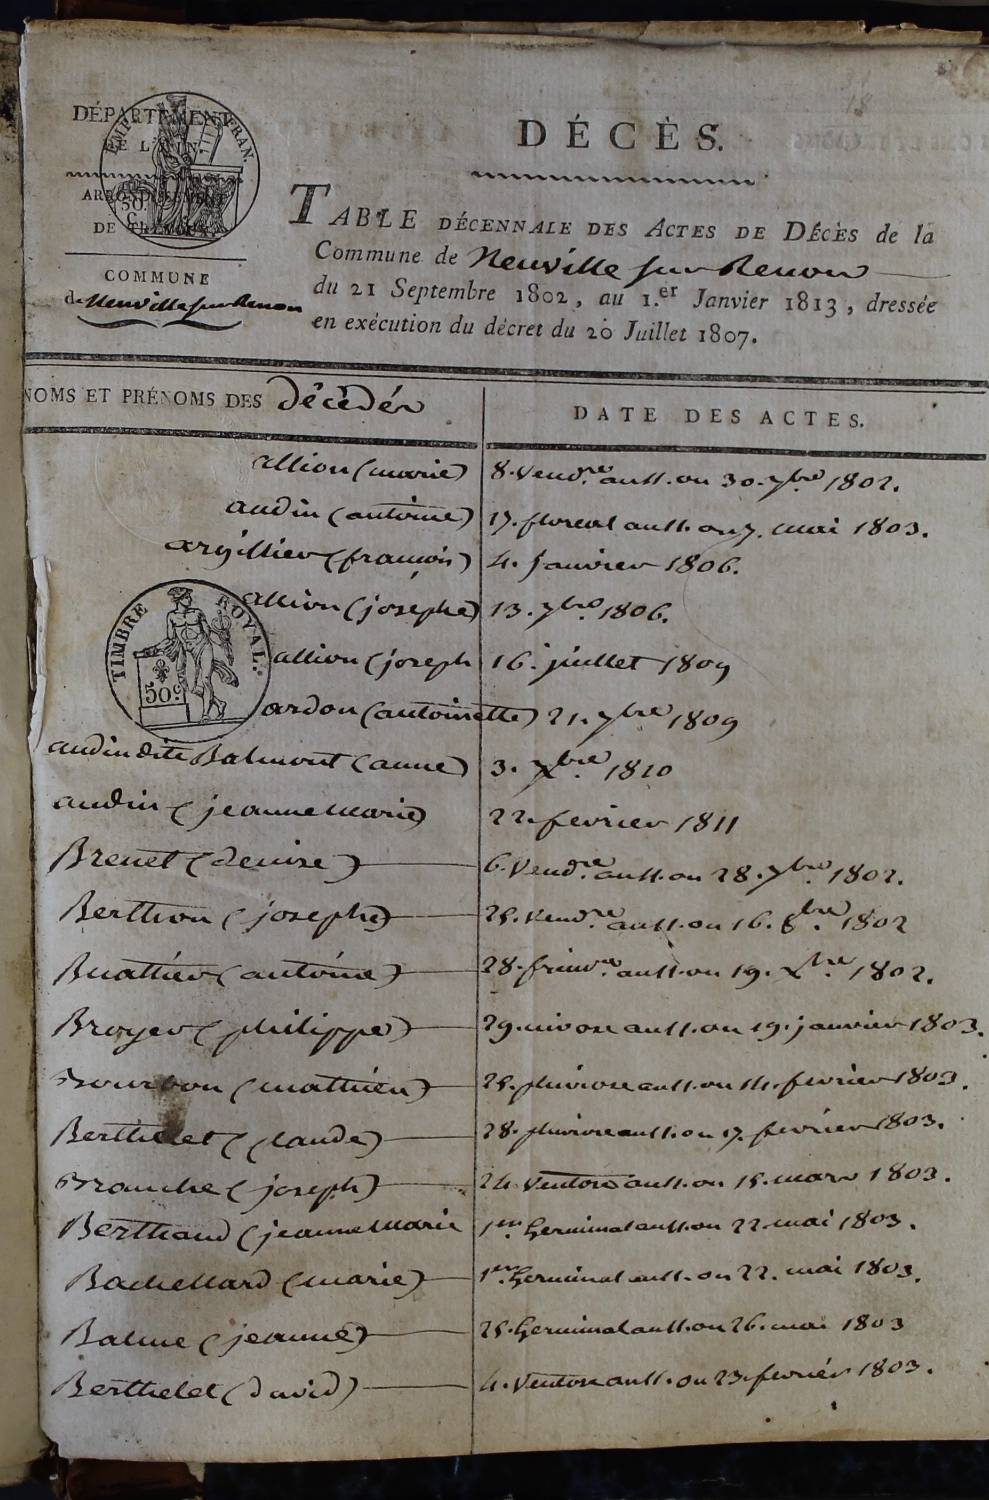 DÉPARTEMENT
DE L'AIN.
ARRONDISSEMENT
DE TRÉVOUX.
COMMUNE
de Neuville sur Renon
EMP. FRAN.
50 C.
DÉCÈS.
TABLE DÉCENNALE DES ACTES DE DÉCÈS de la
Commune de Neuville sur Renon
du 21 Septembre 1802, au 1.er Janvier 1813, dressée
en exécution du décret du 20 Juillet 1807.
NOMS ET PRÉNOMS DES décédés DATE DES ACTES.
allion (marie) 8. Vend.re an 11. ou 30. 7bre 1802.
audin (antoine) 17. floreal an 11. ou 7. mai 1803.
argillier (françois) 4. janvier 1806.
allion (josephe) 13. 7bre 1806.
allion (joseph 16. juillet 1809
ardon (antoinette) 21. 7bre 1809
audin dite Balmont (anne) 3. Xbre 1810
audin (jeanne Marie) 22. fevrier 1811
Brenet (denise) 6. Vend.re an 11. ou 28. 7bre 1802.
Berthon (josephe) 25. Vend.re an 11. ou 16. 8bre 1802
Buathier (antoine) 28. frim.re an 11. ou 19. Xbre 1802.
Broyer (philippe) 29. nivose an 11. ou 19. janvier 1803.
Bourbon (mathieu) 25. pluviose an 11. ou 14. fevrier 1803.
Berthelet (Claude) 28. pluviose an 11. ou 17. février 1803.
Branche (joseph) 24. Ventose an 11. ou 15. mars 1803.
Berthaud (jeanne Marie 1er Germinal an 11. ou 22. mai 1803.
Bachellard (marie) 1er Germinal an 11. ou 22. mai 1803.
Balme (jeanne) 25. Germinal an 11. ou 26. mai 1803
Berthelet (david) 4. Ventose an 11. ou 23. fevrier 1803.
TIMBRE ROYAL.
50 c.